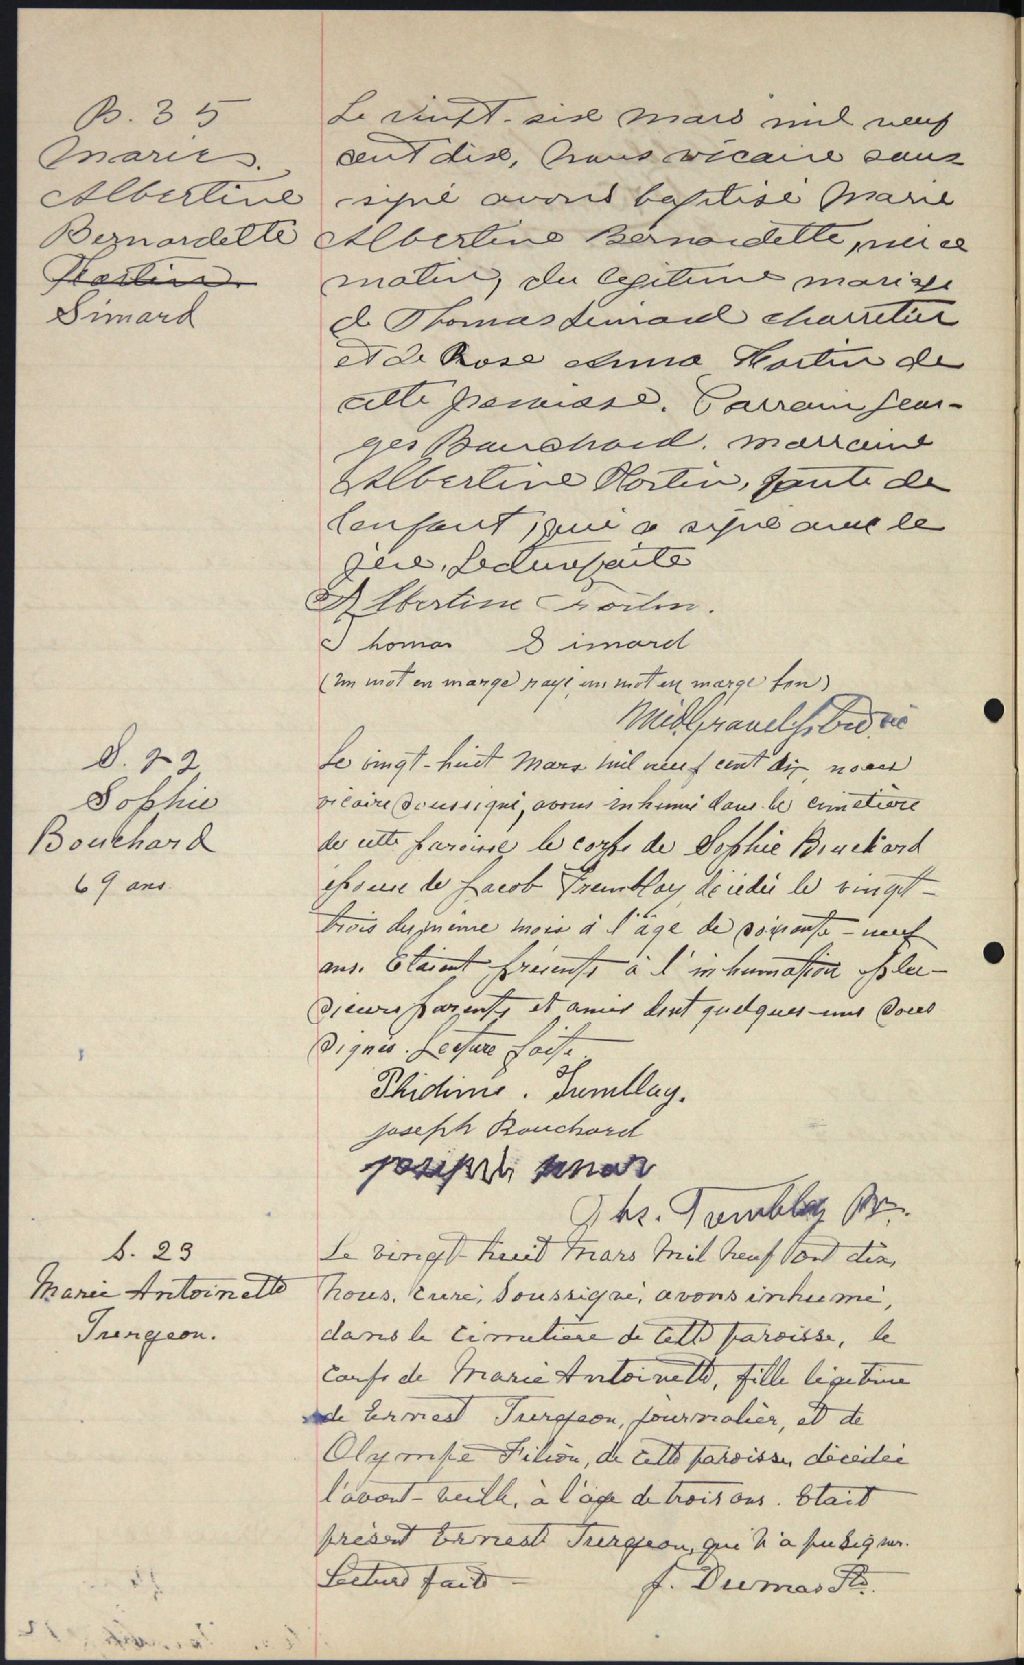 B. 35
Marie
Albertine
Bernadette
Fortin
Simard
Le vingt-six mars mil neuf
cent dix, nous vicaire sous-
signé avons baptisé Marie
Albertine Bernadette, née ce
matin, du légitime mariage
de Thomas Simard charretier
et de Rose Anna Fortin de
cette paroisse. Parrain Geor-
ges Bouchard. marraine
Albertine Fortin, tante de
l'enfant, qui a signé avec le
père. Lecture faite
Albertine Fortin.
Thomas Simard
(un mot en marge rayé, un mot en marge bon)
Gravel ptre vic
S. 22
Sophie
Bouchard
69 ans.
Le vingt-huit Mars mil neuf cent dix, nous
vicaire soussigné, avons inhumé dans le cimetière
de cette paroisse le corps de Sophie Bouchard
épouse de Jacob Tremblay décédée le vingt-
trois du même mois à l'âge de soixante-neuf
ans. Etaient présents à l'inhumation plu-
sieurs parents et amis dont quelques-uns sous
signés. Lecture faite.
Phidime. Tremblay.
Joseph Bouchard
Joseph
Ths. Tremblay Ptre.
S. 23
Marie Antoinette
Turgeon.
Le vingt-huit Mars Mil Neuf cent dix,
Nous, curé, Soussigné, avons inhumé,
dans le cimetière de cette paroisse, le
corps de Marie Antoinette, fille légitime
de Ernest Turgeon, journalier, et de
Olympe Filion, de cette paroisse, décédée
l'avant-veille, à l'âge de trois ans. Etait
présent Ernest Turgeon, qui n'a pu signer.
Lecture faite - J. Dumas Ptr.